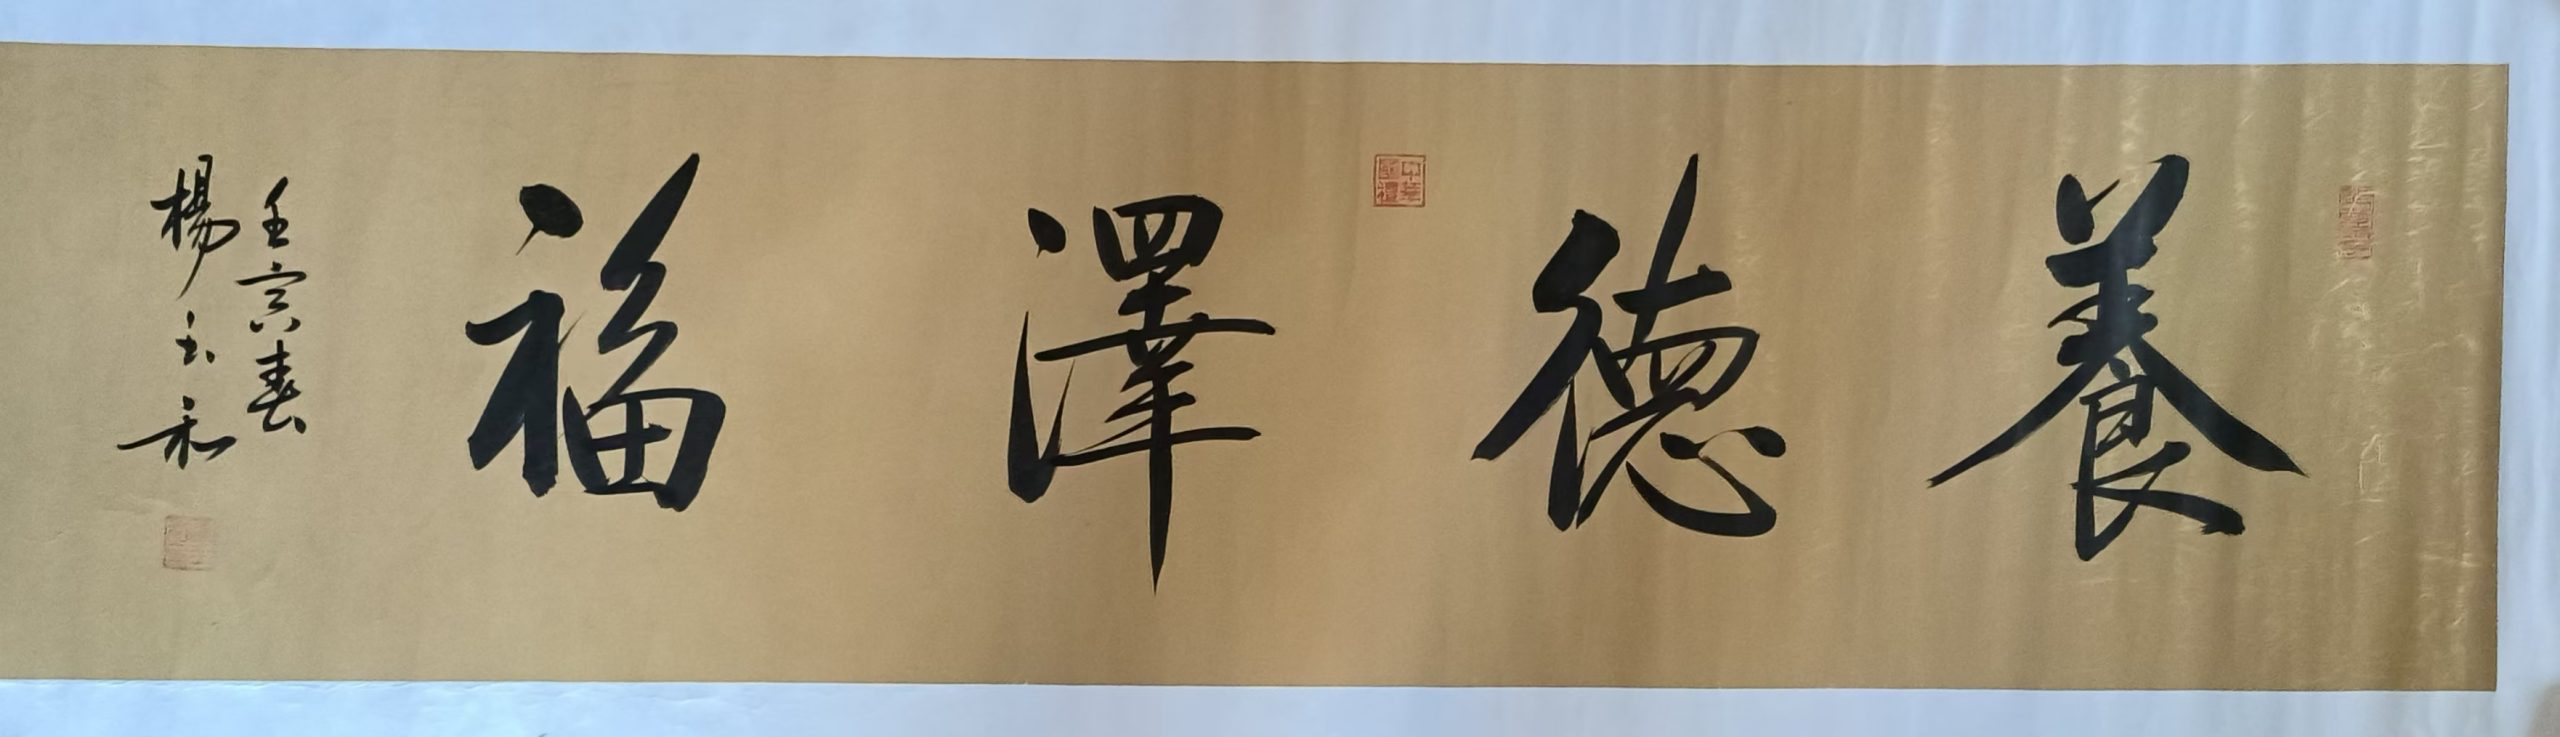 養德澤福
壬寅春
楊玉和
中華國禮